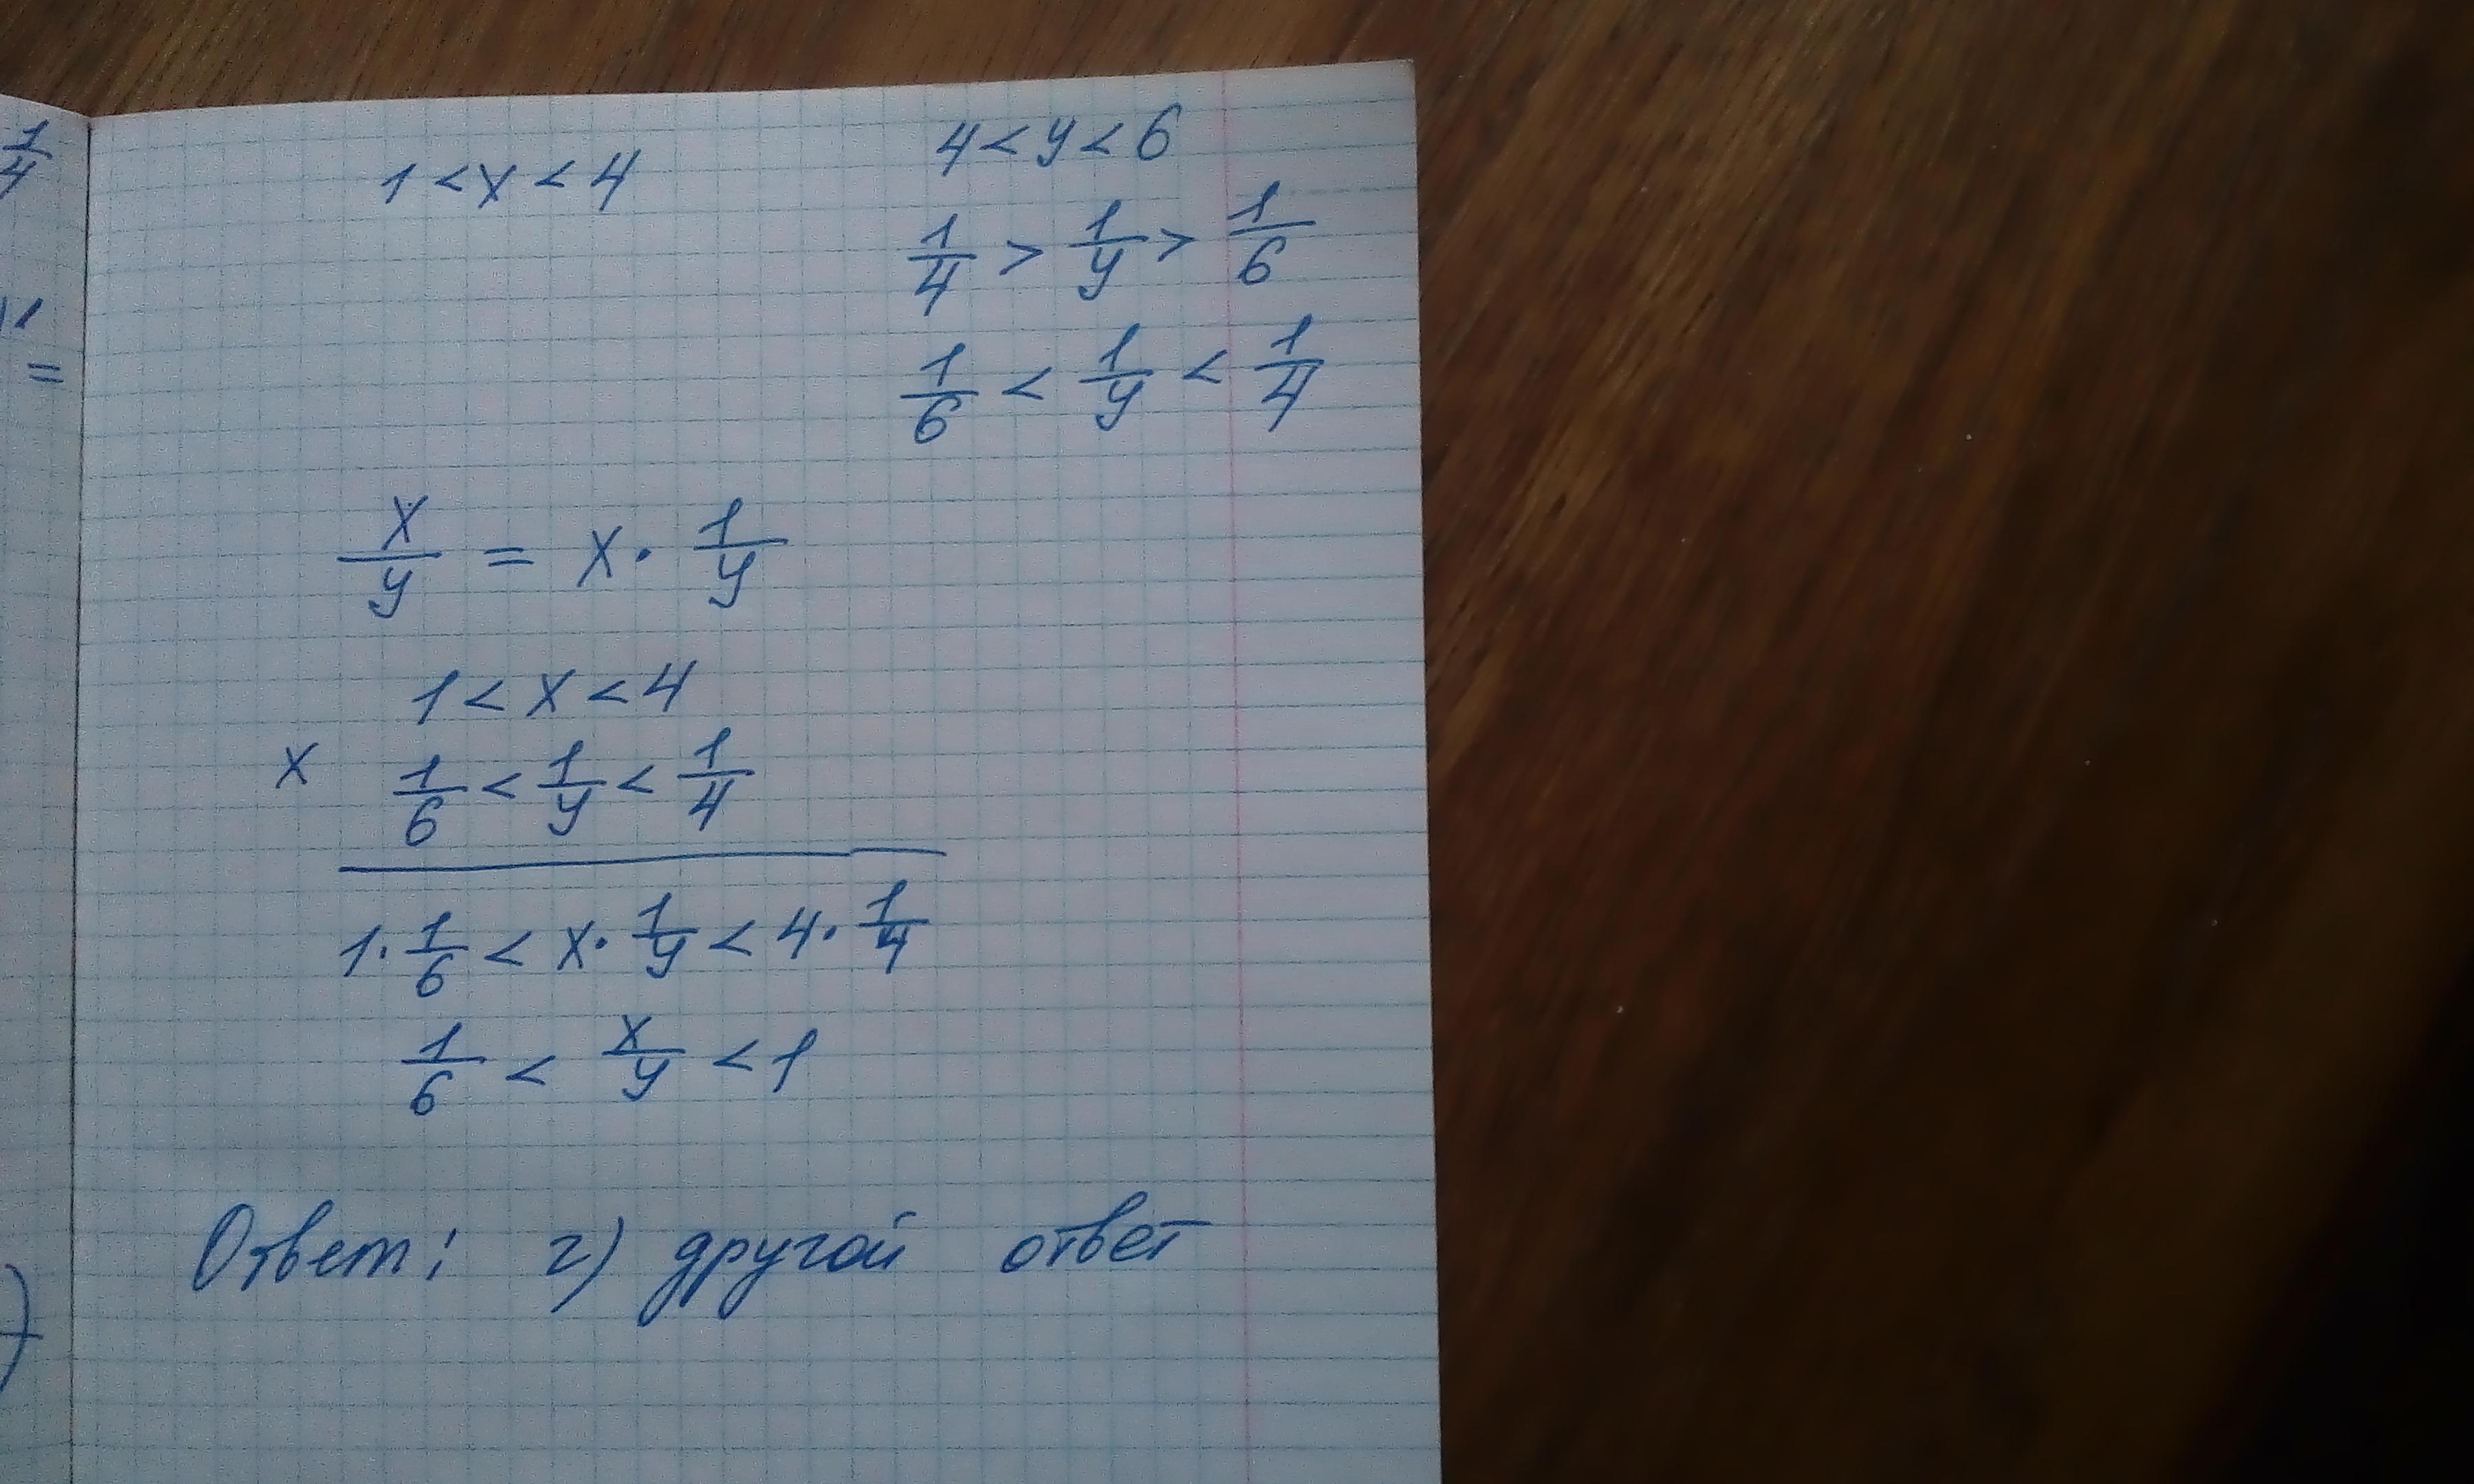 1/4
=
1 < x < 4
4 < y < 6
1/4 > 1/y > 1/6
1/6 < 1/y < 1/4
x/y = x · 1/y
1 < x < 4
x 1/6 < 1/y < 1/4
1 · 1/6 < x · 1/y < 4 · 1/4
1/6 < x/y < 1
Ответ: г) другой ответ